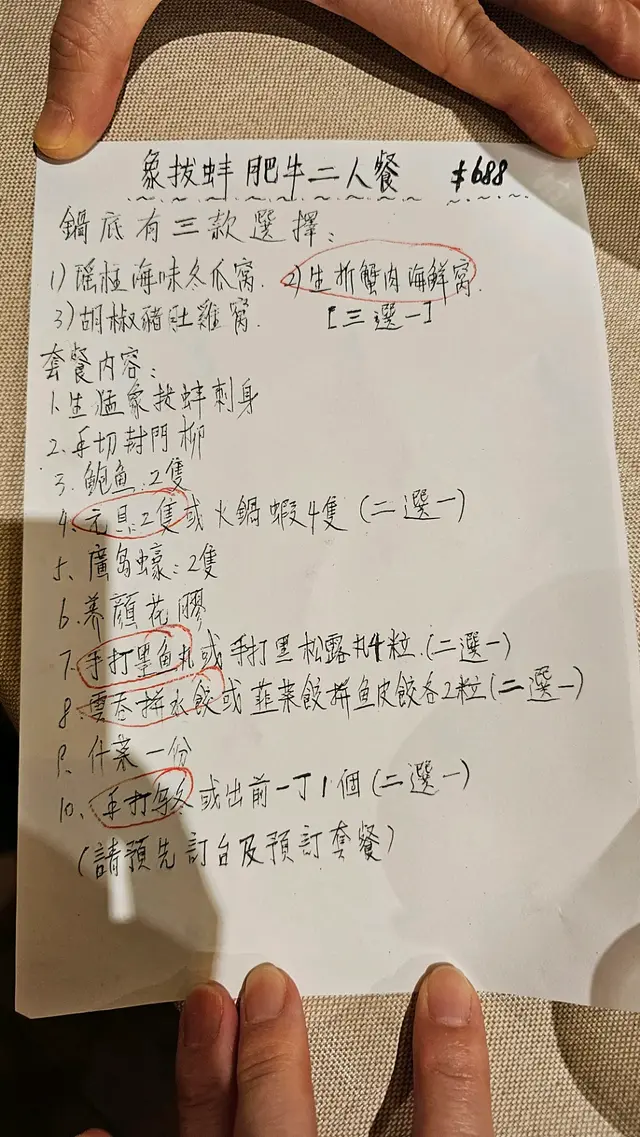 象拔蚌肥牛二人餐 $688
鍋底有三款選擇：
1) 瑶柱海味冬瓜窝. 2) 生折蟹肉海鮮窝.
3) 胡椒豬肚雞窝. [三選一]
套餐內容：
1. 生猛象拔蚌刺身
2. 手切封門柳
3. 鮑魚：2隻
4. 元貝2隻或火鍋蝦4隻 (二選一)
5、廣岛蠔：2隻
6、养顏花膠
7、手打墨魚丸或手打黑松露丸4粒.(二選一)
8、雲吞拼水餃或韮菜餃拼魚皮餃各2粒(二選一)
9、什菜一份
10、手打烏冬或出前一丁1個(二選一)
(請預先訂台及預訂套餐)